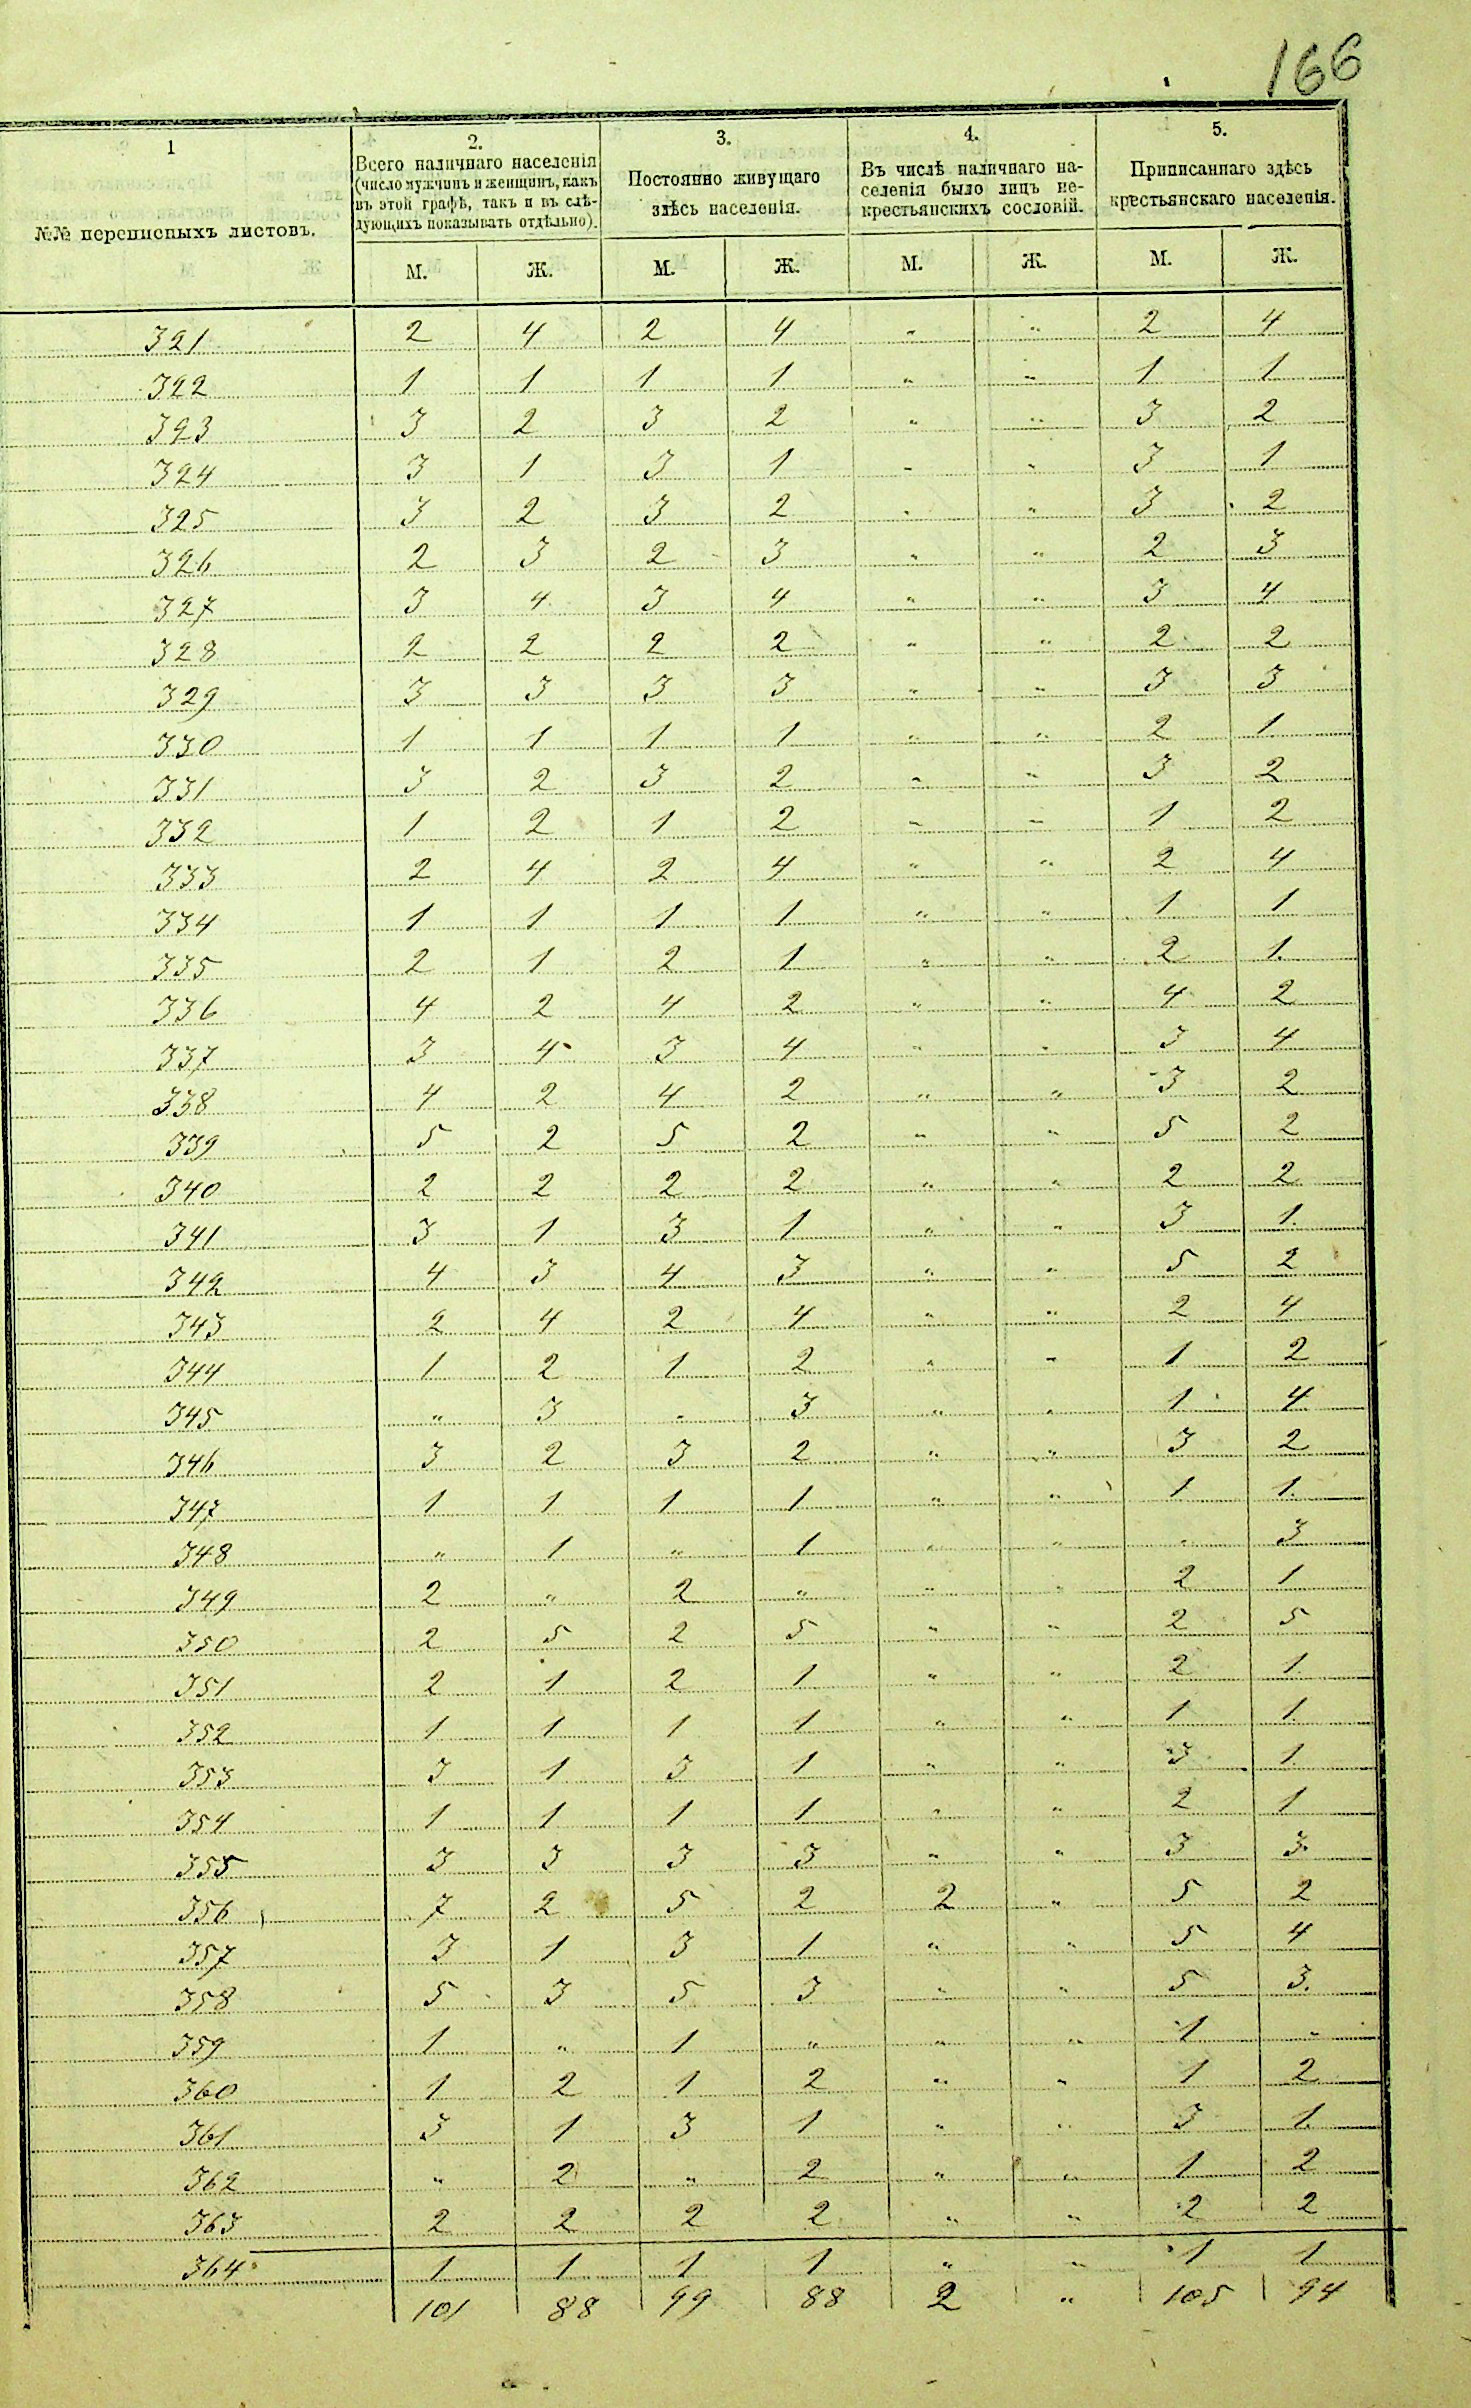 166
1 2. 3. 4. 5.
№№ переписныхъ листовъ.
Всего наличнаго населенія
(число мужчинъ и женщинъ, какъ
въ этой графѣ, такъ и въ слѣ-
дующихъ показывать отдѣльно).
Постоянно живущаго
здѣсь населенія.
Въ числѣ наличнаго на-
селенія было лицъ не-
крестьянскихъ сословій.
Приписаннаго здѣсь
крестьянскаго населенія.
М. Ж. М. Ж. М. Ж. М. Ж.
321 2 4 2 4 " " 2 4
322 1 1 1 1 " " 1 1
323 3 2 3 2 " " 3 2
324 3 1 3 1 " " 3 1
325 3 2 3 2 " " 3 2
326 2 3 2 3 " " 2 3
327 3 4 3 4 " " 3 4
328 2 2 2 2 " " 2 2
329 3 3 3 3 " " 3 3
330 1 1 1 1 " " 2 1
331 3 2 3 2 " " 3 2
332 1 2 1 2 " " 1 2
333 2 4 2 4 " " 2 4
334 1 1 1 1 " " 1 1
335 2 1 2 1 " " 2 1
336 4 2 4 2 " " 4 2
337 3 4 3 4 " " 3 4
338 4 2 4 2 " " 3 2
339 5 2 5 2 " " 5 2
340 2 2 2 2 " " 2 2
341 3 1 3 1 " " 3 1
342 4 3 4 3 " " 5 2
343 2 4 2 4 " " 2 4
344 1 2 1 2 " " 1 2
345 " 3 " 3 " " 1 4
346 3 2 3 2 " " 3 2
347 1 1 1 1 " " 1 1
348 " 1 " 1 " " " 3
349 2 " 2 " " " 2 1
350 2 5 2 5 " " 2 5
351 2 1 2 1 " " 2 1
352 1 1 1 1 " " 1 1
353 3 1 3 1 " " 3 1
354 1 1 1 1 " " 2 1
355 3 3 3 3 " " 3 3
356 7 2 5 2 2 " 5 2
357 3 1 3 1 " " 5 4
358 5 3 5 3 " " 5 3
359 1 " 1 " " " 1 "
360 1 2 1 2 " " 1 2
361 3 1 3 1 " " 3 1
362 " 2 " 2 " " 1 2
363 2 2 2 2 " " 2 2
364 1 1 1 1 " " 1 1
101 88 99 88 2 " 105 94